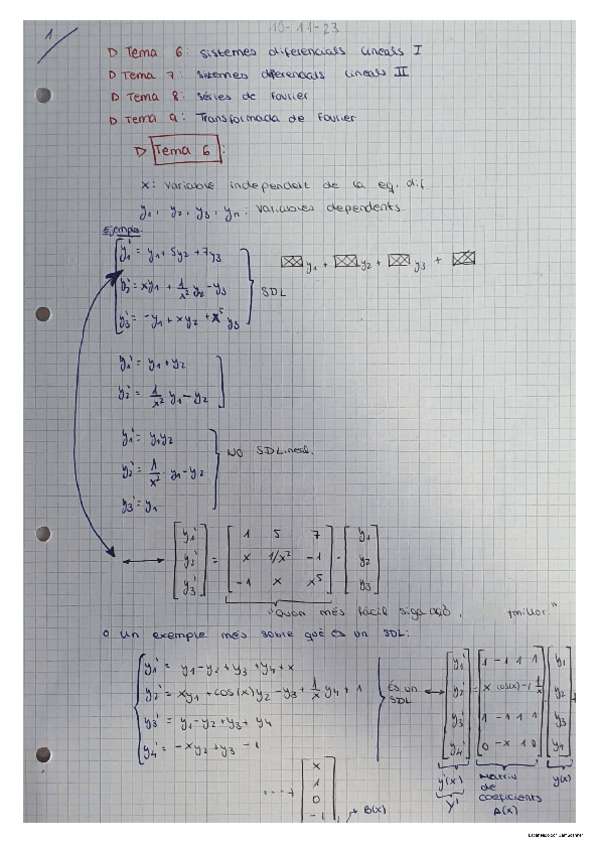 1
10-11-23
D Tema 6: sistemes diferencials lineals I
D Tema 7: sistemes diferencials lineals II
D Tema 8: séries de Fourier
D Tema 9: Transformada de Fourier
D Tema 6:
x: variable independent de la eq. dif.
y1, y2, y3, yn: variables dependents.
Exemple:
y1' = y1 + 5y2 + 7y3
y2' = xy1 + 1/x² y2 - y3
y3' = -y1 + xy2 + x⁵ y3
SDL
y1 + y2 + y3 +
y1' = y1 + y2
y2' = 1/x² y1 - y2
y1' = y1y2
y2' = 1/x² · y1 - y2
y3' = y1
NO SDLineal.
y1' 1 5 7 y1
y2' = x 1/x² -1 · y2
y3' -1 x x⁵ y3
"Quan més fàcil sigui això, millor."
O un exemple més sobre què és un SDL:
y1' = y1 - y2 + y3 + y4 + x
y2' = xy1 + cos(x)y2 - y3 + 1/x y4 + 1
y3' = y1 - y2 + y3 + y4
y4' = -xy2 + y3 - 1
És un SDL
y1' 1 -1 1 1 y1
y2' = x cos(x) -1 1/x · y2
y3' 1 -1 1 1 y3
y4' 0 -x 1 0 y4
y'(x)
Y'
Matriu de coeficients
A(x)
y(x)
····+
x
1
0
-1
→ B(x)